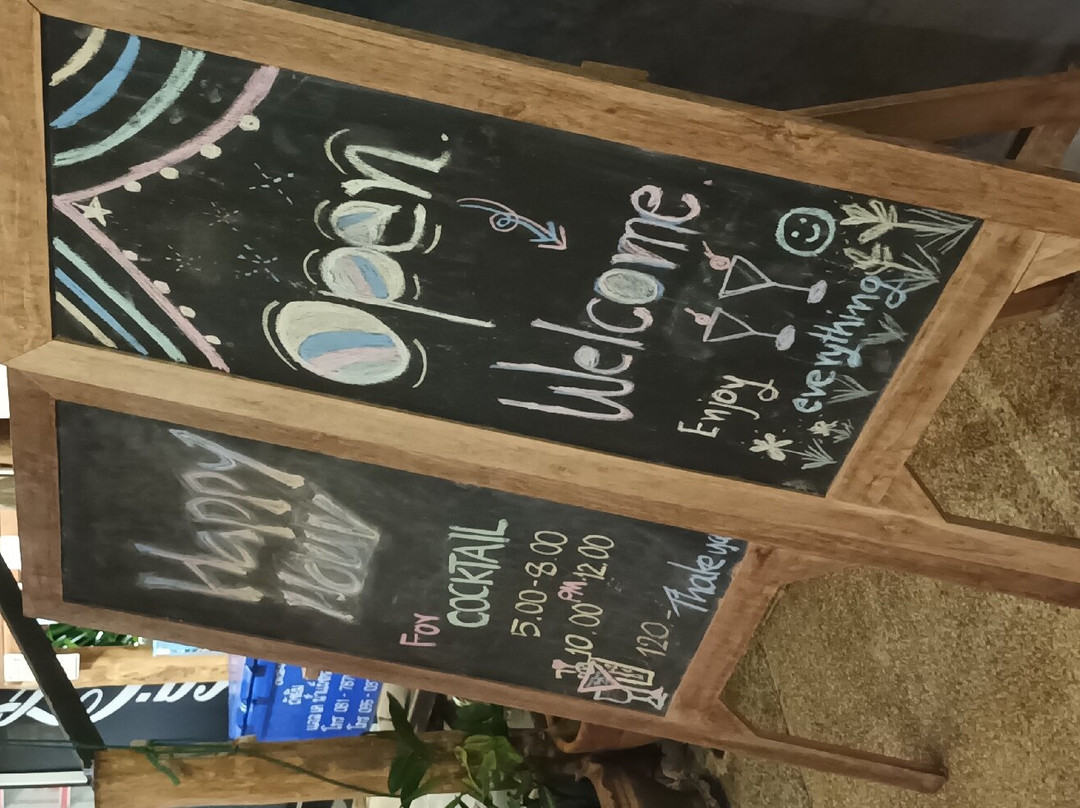 Open.
Welcome.
Enjoy
everything
Happy
Hour
For
COCKTAIL
5.00-8.00
10.00 PM-12.00
120.-
โทร 081-